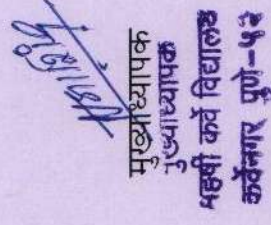 मुख्याध्यापक
मुख्याध्यापक
महर्षी कर्वे विद्यालय
कर्वेनगर पुणे-५२